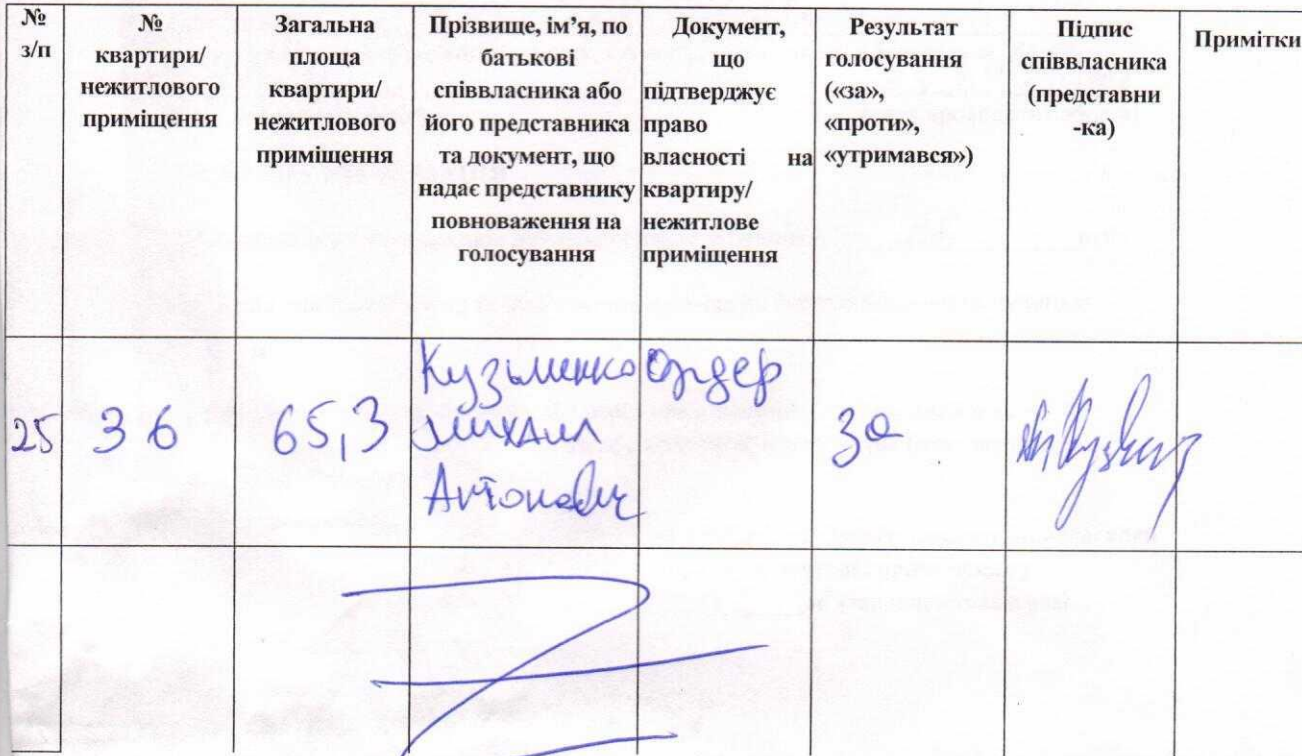 № з/п
№ квартири/ нежитлового приміщення
Загальна площа квартири/ нежитлового приміщення
Прізвище, ім’я, по батькові співвласника або його представника та документ, що надає представнику повноваження на голосування
Документ, що підтверджує право власності на квартиру/ нежитлове приміщення
Результат голосування («за», «проти», «утримався»)
Підпис співвласника (представни -ка)
Примітки
25
36
65,3
Кузьменко
Михаил
Антонович
Ордер
за